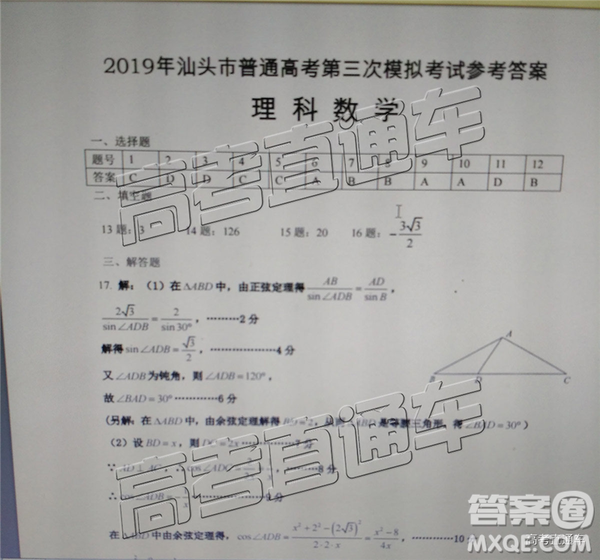 2019年汕头市普通高考第三次模拟考试参考答案
理 科 数 学
一、选择题
题号 1 2 3 4 5 6 7 8 9 10 11 12
答案 C D D C C A B B A A D B
二、填空题
13题：3 14题：126 15题：20 16题：-3√3/2
三、解答题
17. 解：（1）在△ABD中，由正弦定理得 AB/sin∠ADB = AD/sin B，
2√3/sin∠ADB = 2/sin30°，………2分
解得sin∠ADB = √3/2，………………4分
A
B D C
又∠ADB为钝角，则∠ADB=120°，
故∠BAD=30°…………6分
（另解：在△ABD中，由余弦定理解得BD=2，从而△ABD是等腰三角形，得∠BAD=30°）
（2）设BD=x，则DC=2x…………7分
∵AD⊥AC，∴cos∠ADC= ………8分
∴cos∠ADB=- …………9分
在△ABD中由余弦定理得，cos∠ADB = (x²+2²-(2√3)²)/(2·2·x) = (x²-8)/4x，………10分
高考直通车
高考直通车
高考直通车
答案卷
MXQE.COM